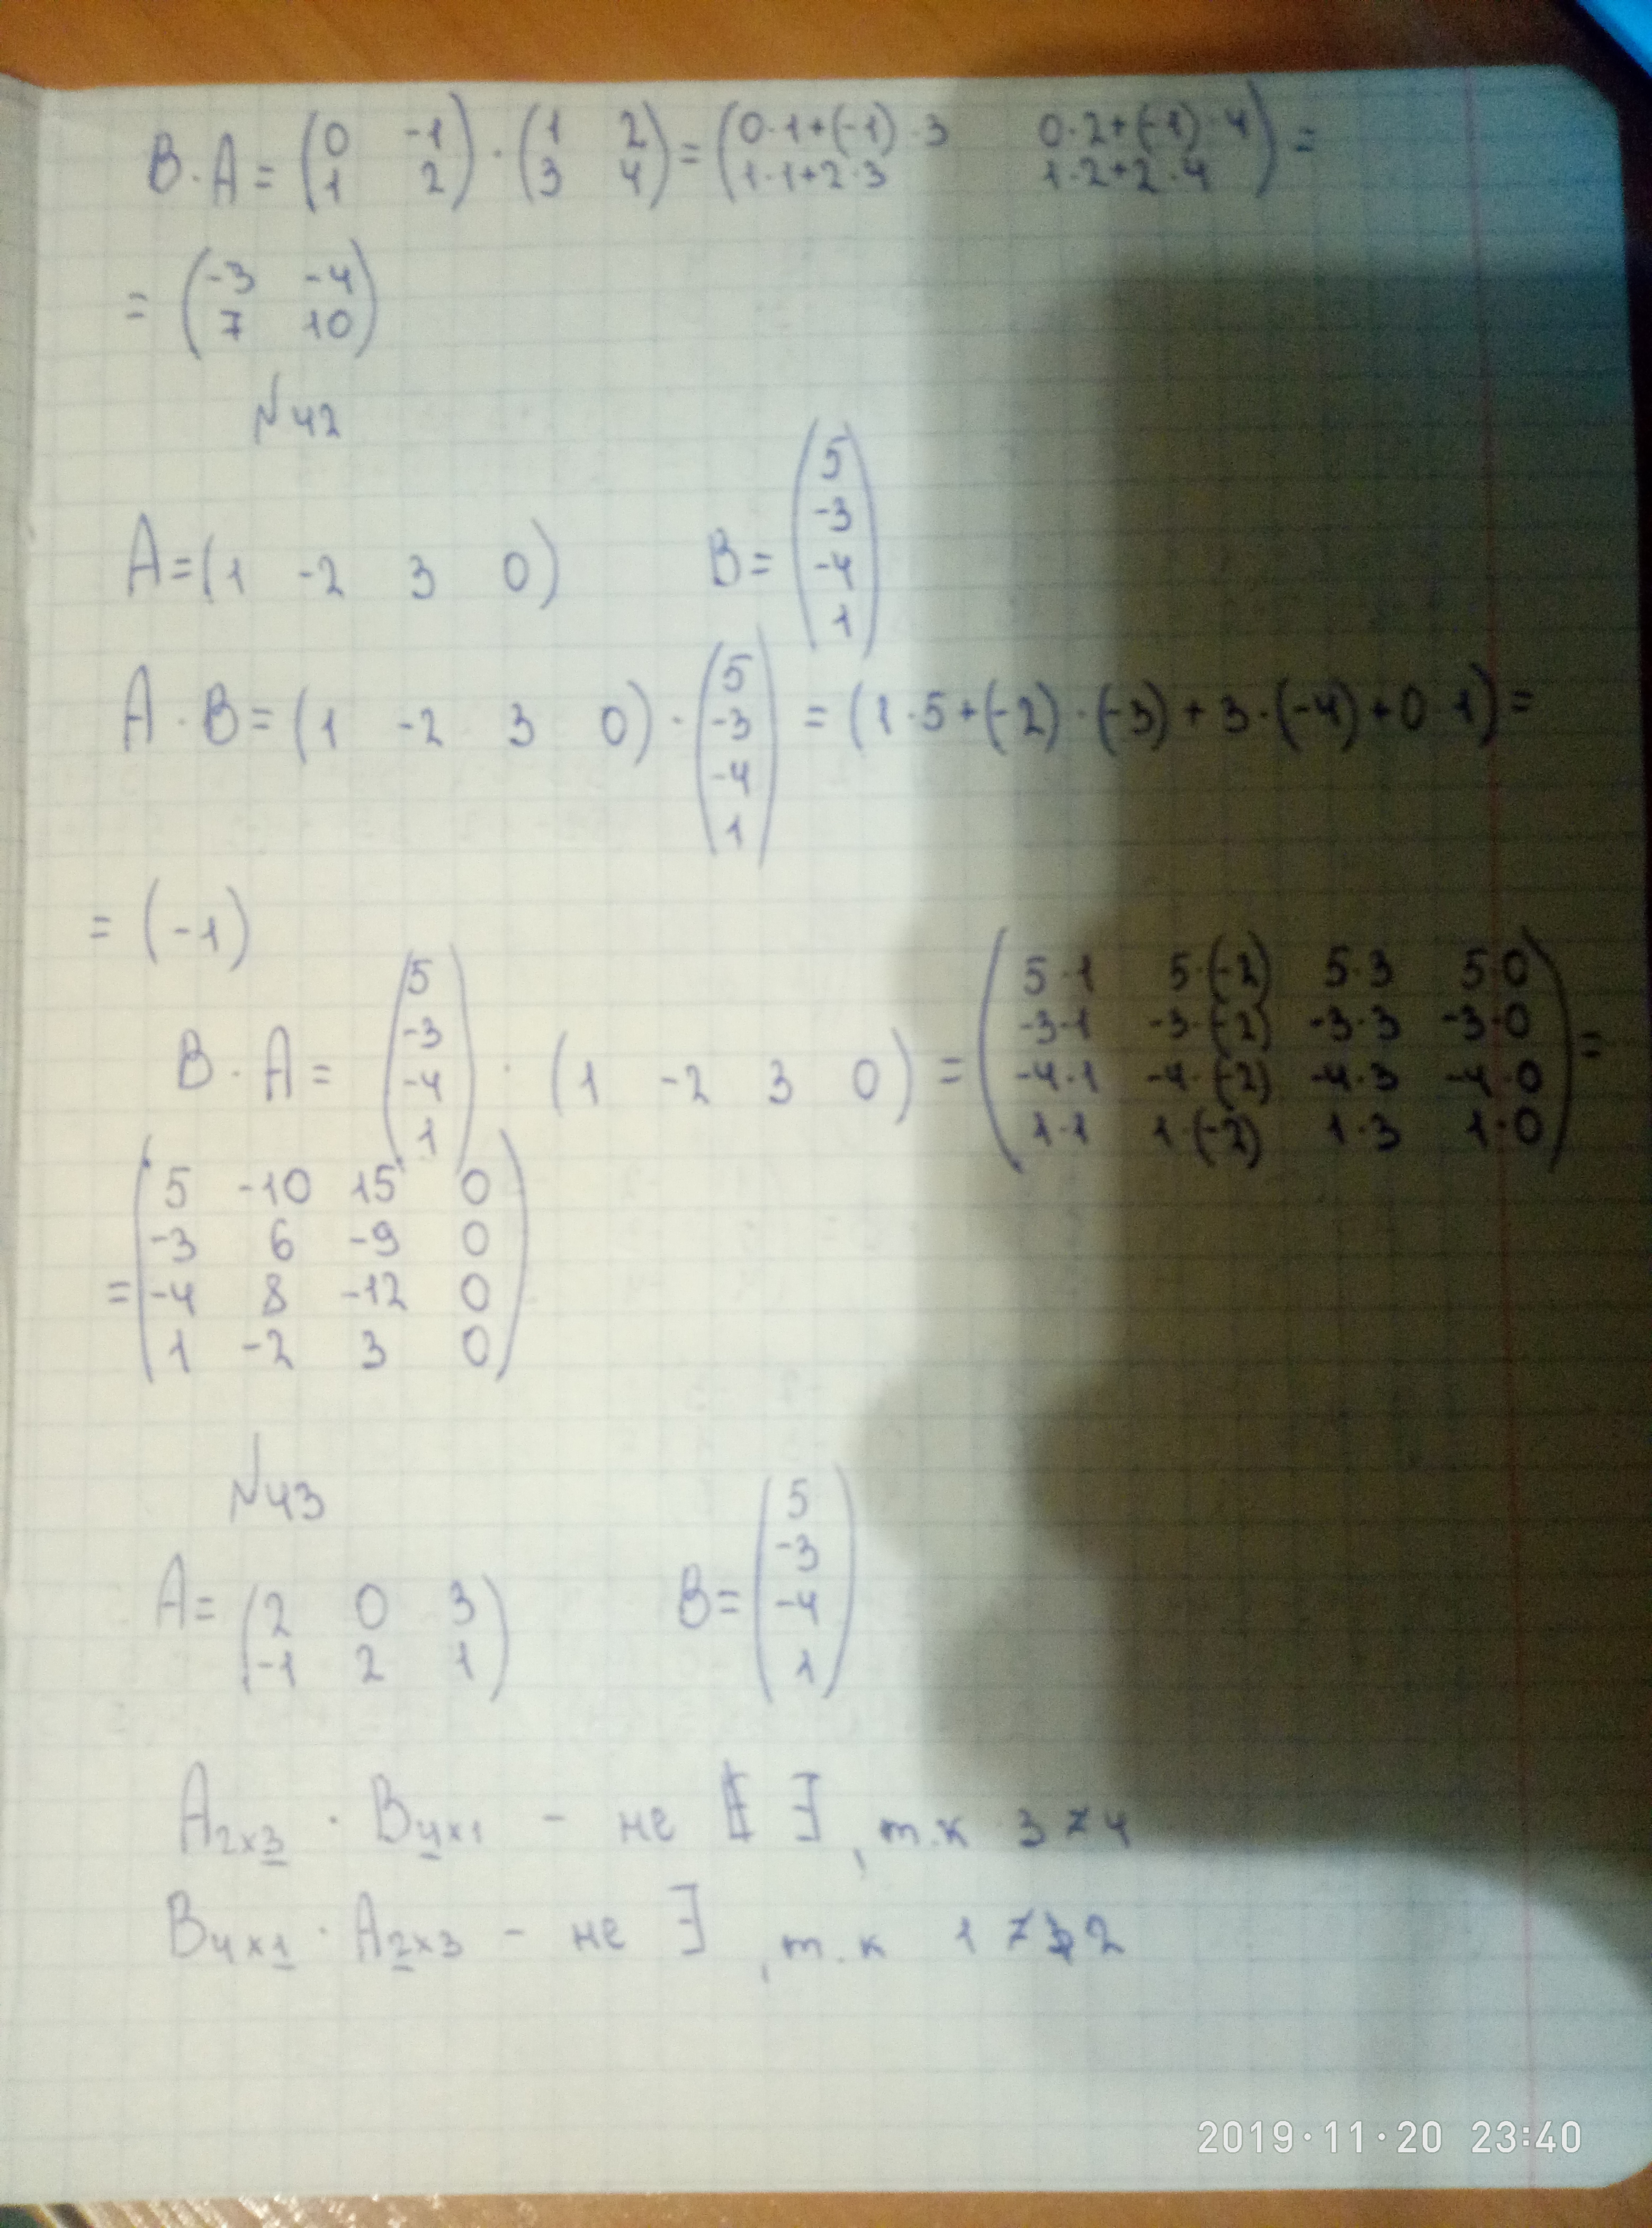 B · A = (0 -1) · (1 2) = (0·1+(-1)·3 0·2+(-1)·4) =
(1 2) (3 4) (1·1+2·3 1·2+2·4)
= (-3 -4)
(7 10)
№42
A = (1 -2 3 0) B = (5
-3
-4
1)
A · B = (1 -2 3 0) · (5
-3
-4
1) = (1·5+(-2)·(-3)+3·(-4)+0·1) =
= (-1)
B · A = (5
-3
-4
1) · (1 -2 3 0) = (5·1 5·(-2) 5·3 5·0
-3·1 -3·(-2) -3·3 -3·0
-4·1 -4·(-2) -4·3 -4·0
1·1 1·(-2) 1·3 1·0) =
= (5 -10 15 0
-3 6 -9 0
-4 8 -12 0
1 -2 3 0)
№43
A = (2 0 3
-1 2 1) B = (5
-3
-4
1)
A2×3 · B4×1 - не ∃, т.к 3 ≠ 4
B4×1 · A2×3 - не ∃, т.к 1 ≠ 2
2019·11·20 23:40